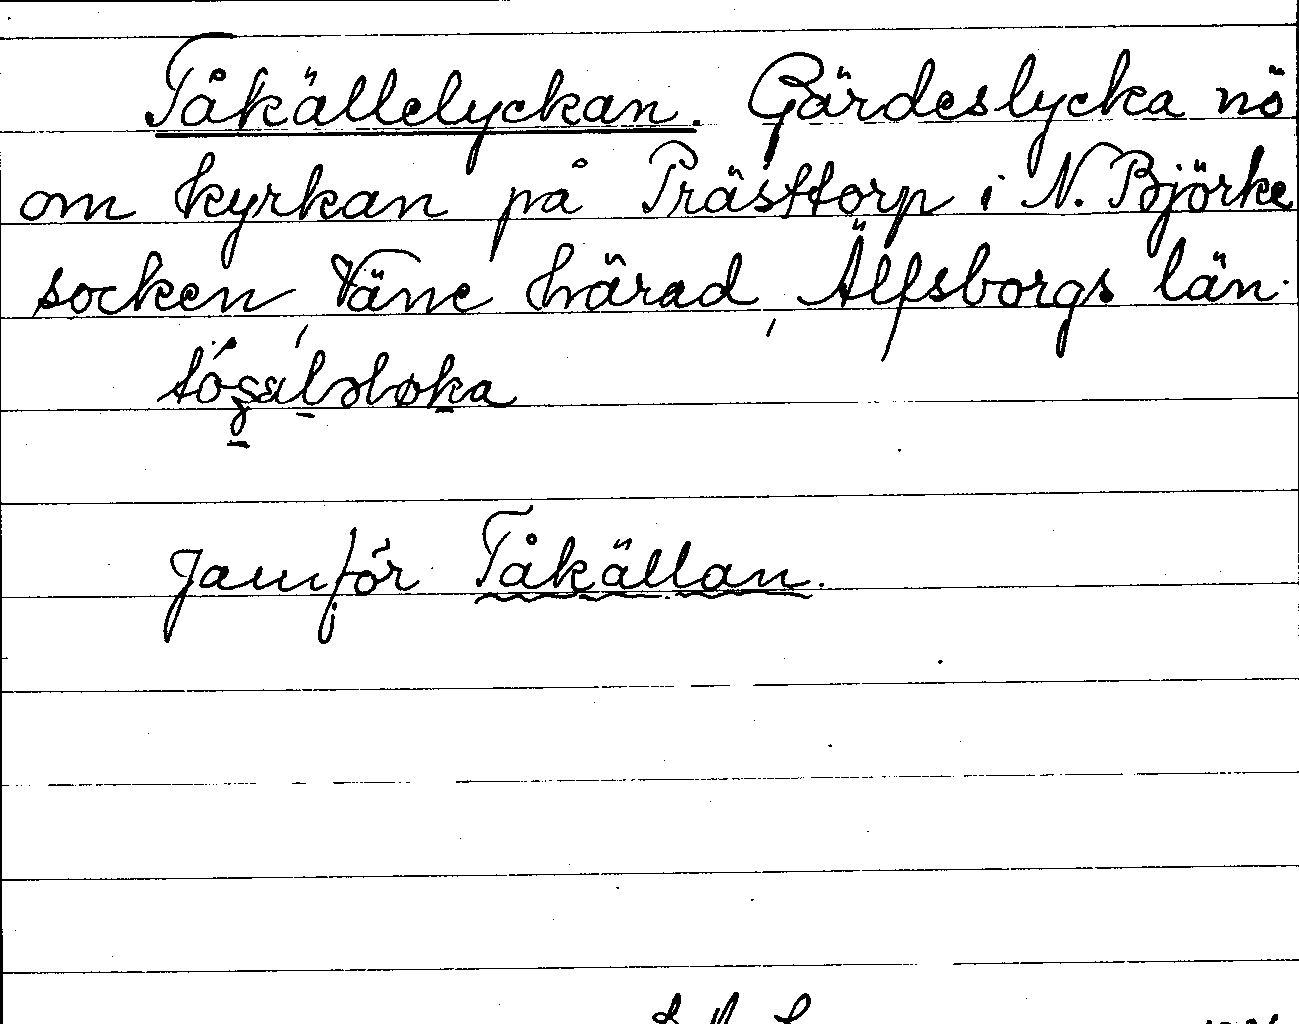 Tåkällelyckan. Gärdeslycka nö
om kyrkan på Prästtorp i N. Björke
socken, Väne härad, Älfsborgs län.
Jämför Tåkällan.